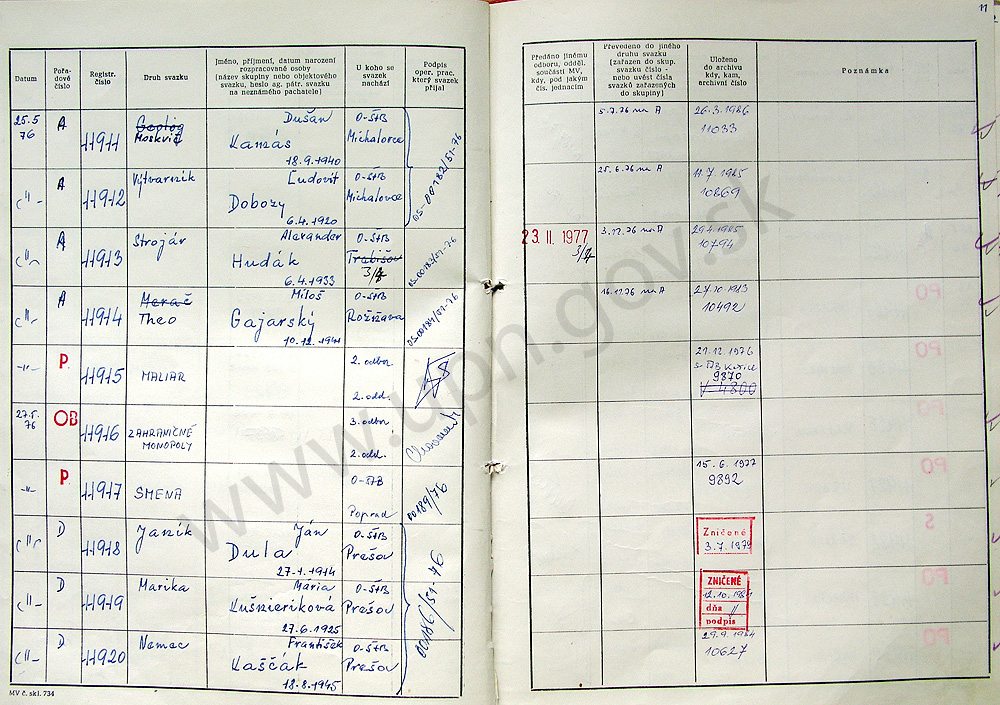 11
Datum
Pořa-
dové
číslo
Registr.
číslo
Druh svazku
Jméno, příjmení, datum narození
rozpracované osoby
(název skupiny nebo objektového
svazku, heslo ag. pátr. svazku
na neznámého pachatele)
U koho se
svazek
nachází
Podpis
oper. prac.
který svazek
přijal
Předáno jinému
odboru, odděl.
součásti MV,
kdy, pod jakým
čís. jednacím
Převedeno do jiného
druhu svazku
(zařazen do skup.
svazku číslo -
nebo uvést čísla
svazků zařazených
do skupiny)
Uloženo
do archivu
kdy, kam,
archivní číslo
Poznámka
25.5
76
A
11911
Geolog
Moskvič
Dušan
Kanáš
18.9.1940
O-ŠtB
Michalovce
OS-00182/51-76
5.7.76 na A
26.3.1986
11033
-"-
A
11912
Výtvarník
Ľudovít
Dobozy
6.4.1920
O-ŠtB
Michalovce
25.6.76 na A
11.7.1985
10869
-"-
A
11913
Strojár
Alexander
Hudák
6.4.1933
O-ŠtB
Trebišov
OS-00183/51-76
23. II. 1977
3.12.76 na A
29.4.1985
10794
-"-
A
11914
Merač
Theo
Miloš
Gajarský
10.12.1941
O-ŠtB
Rožňava
OS-00184/51-76
16.12.76 na A
27.10.1983
10492
-"-
P
11915
MALIAR
2. odbor
2. odd.
21.12.1976
9870
V-4800
27.5.
76
OB
11916
ZAHRANIČNÉ
MONOPOLY
3. odbor
2. odd.
-"-
P
11917
SMENA
O-ŠtB
Poprad
00189/76
15.6.1977
9892
-"-
D
11918
Janík
Ján
Dula
27.1.1914
O-ŠtB
Prešov
00186/51-76
Zničené
3.7.1979
-"-
D
11919
Marika
Mária
Kušnieriková
27.6.1925
O-ŠtB
Prešov
ZNIČENÉ
12.10.1984
dňa
podpis
-"-
D
11920
Nemec
František
Kaščák
18.8.1945
O-ŠtB
Prešov
29.9.1984
10627
MV č. skl. 734
www.upn.gov.sk